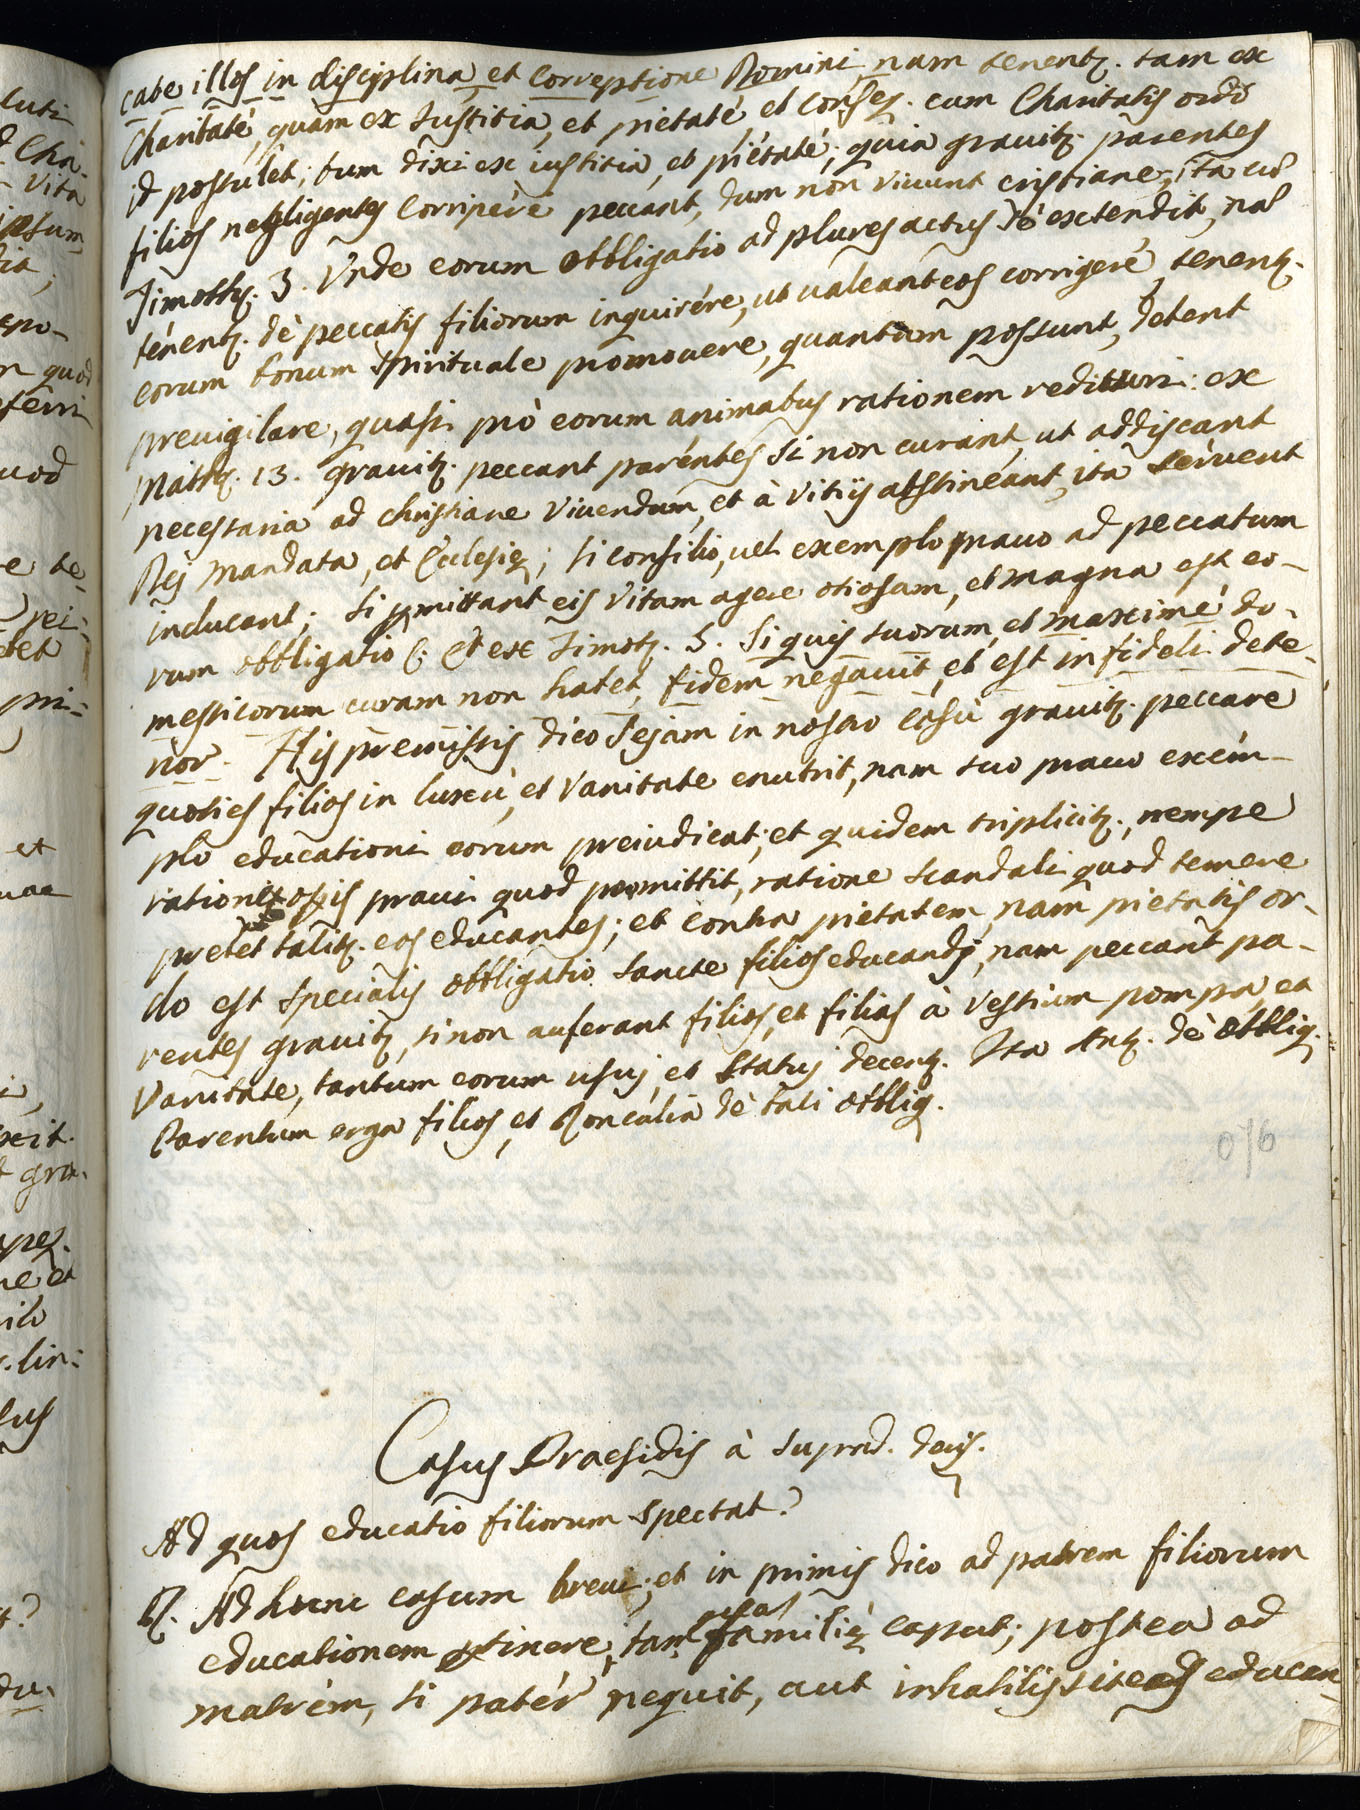 cate illos in disciplina et correptione Domini, nam tenentr. tam ex
Charitate, quam ex Justitia, et pietate et conseq. cum Charitatis ordo
id postulet; tum dixi ex iustitia, et pietate; quia gravitr. parentes
filios negligentes corripere peccant, dum non vivunt cristiane, ita
Timoth. 3. Vnde eorum obbligatio ad plures actus se extendit, nam
tenentr. de peccatis filiorum inquirere, ut valeant eos corrigere, tenentr.
eorum bonum spirituale promovere, quantum possunt, debent
previgilare, quasi pro eorum animabus rationem redituri: ex
Matth. 13. gravitr. peccant parentes si non curant, ut addiscant
necessaria ad christiane vivendum, et à vitijs abstineant, ita servent
Dei mandata, et Ecclesię; si consilio, vel exemplo pravo ad peccatum
inducant; si pmittant eis vitam agere otiosam, et magna est eo-
rum obbligatio Et ex Timot. 5. Si quis suorum, et maxime do-
mesticorum curam non habet, fidem negavit, et est infideli dete-
rior. His premissis dico Sejam in nostro casu gravitr. peccare
quoties filios in luxu, et vanitate enutrit, nam suo pravo exem-
plo educationi eorum preiudicat; et quidem triplicitr., nempe
ratione pravi quod promittit, ratione scandali quod temere
prebet talitr. eos educantes; et contra pietatem, nam pietatis or-
do est specialis obbligatio sancte filios educandi, nam peccant pa-
rentes gravitr, si non auferant filios, et filias à vestium pompa, et
vanitate, tantum eorum usui, et statui decentr. Ita de obblig.
Parentum erga filios, et Roncalia de tali obblig.
076
Casus Praesidis à suprad. decis.
Ad quos educatio filiorum spectat?
R. Ad hunc casum breve; et in primis dico ad patrem filiorum
educationem ptinere, tamq familię caput; postea ad
matrem, si pater nequit, aut inhabilis sit eos educan